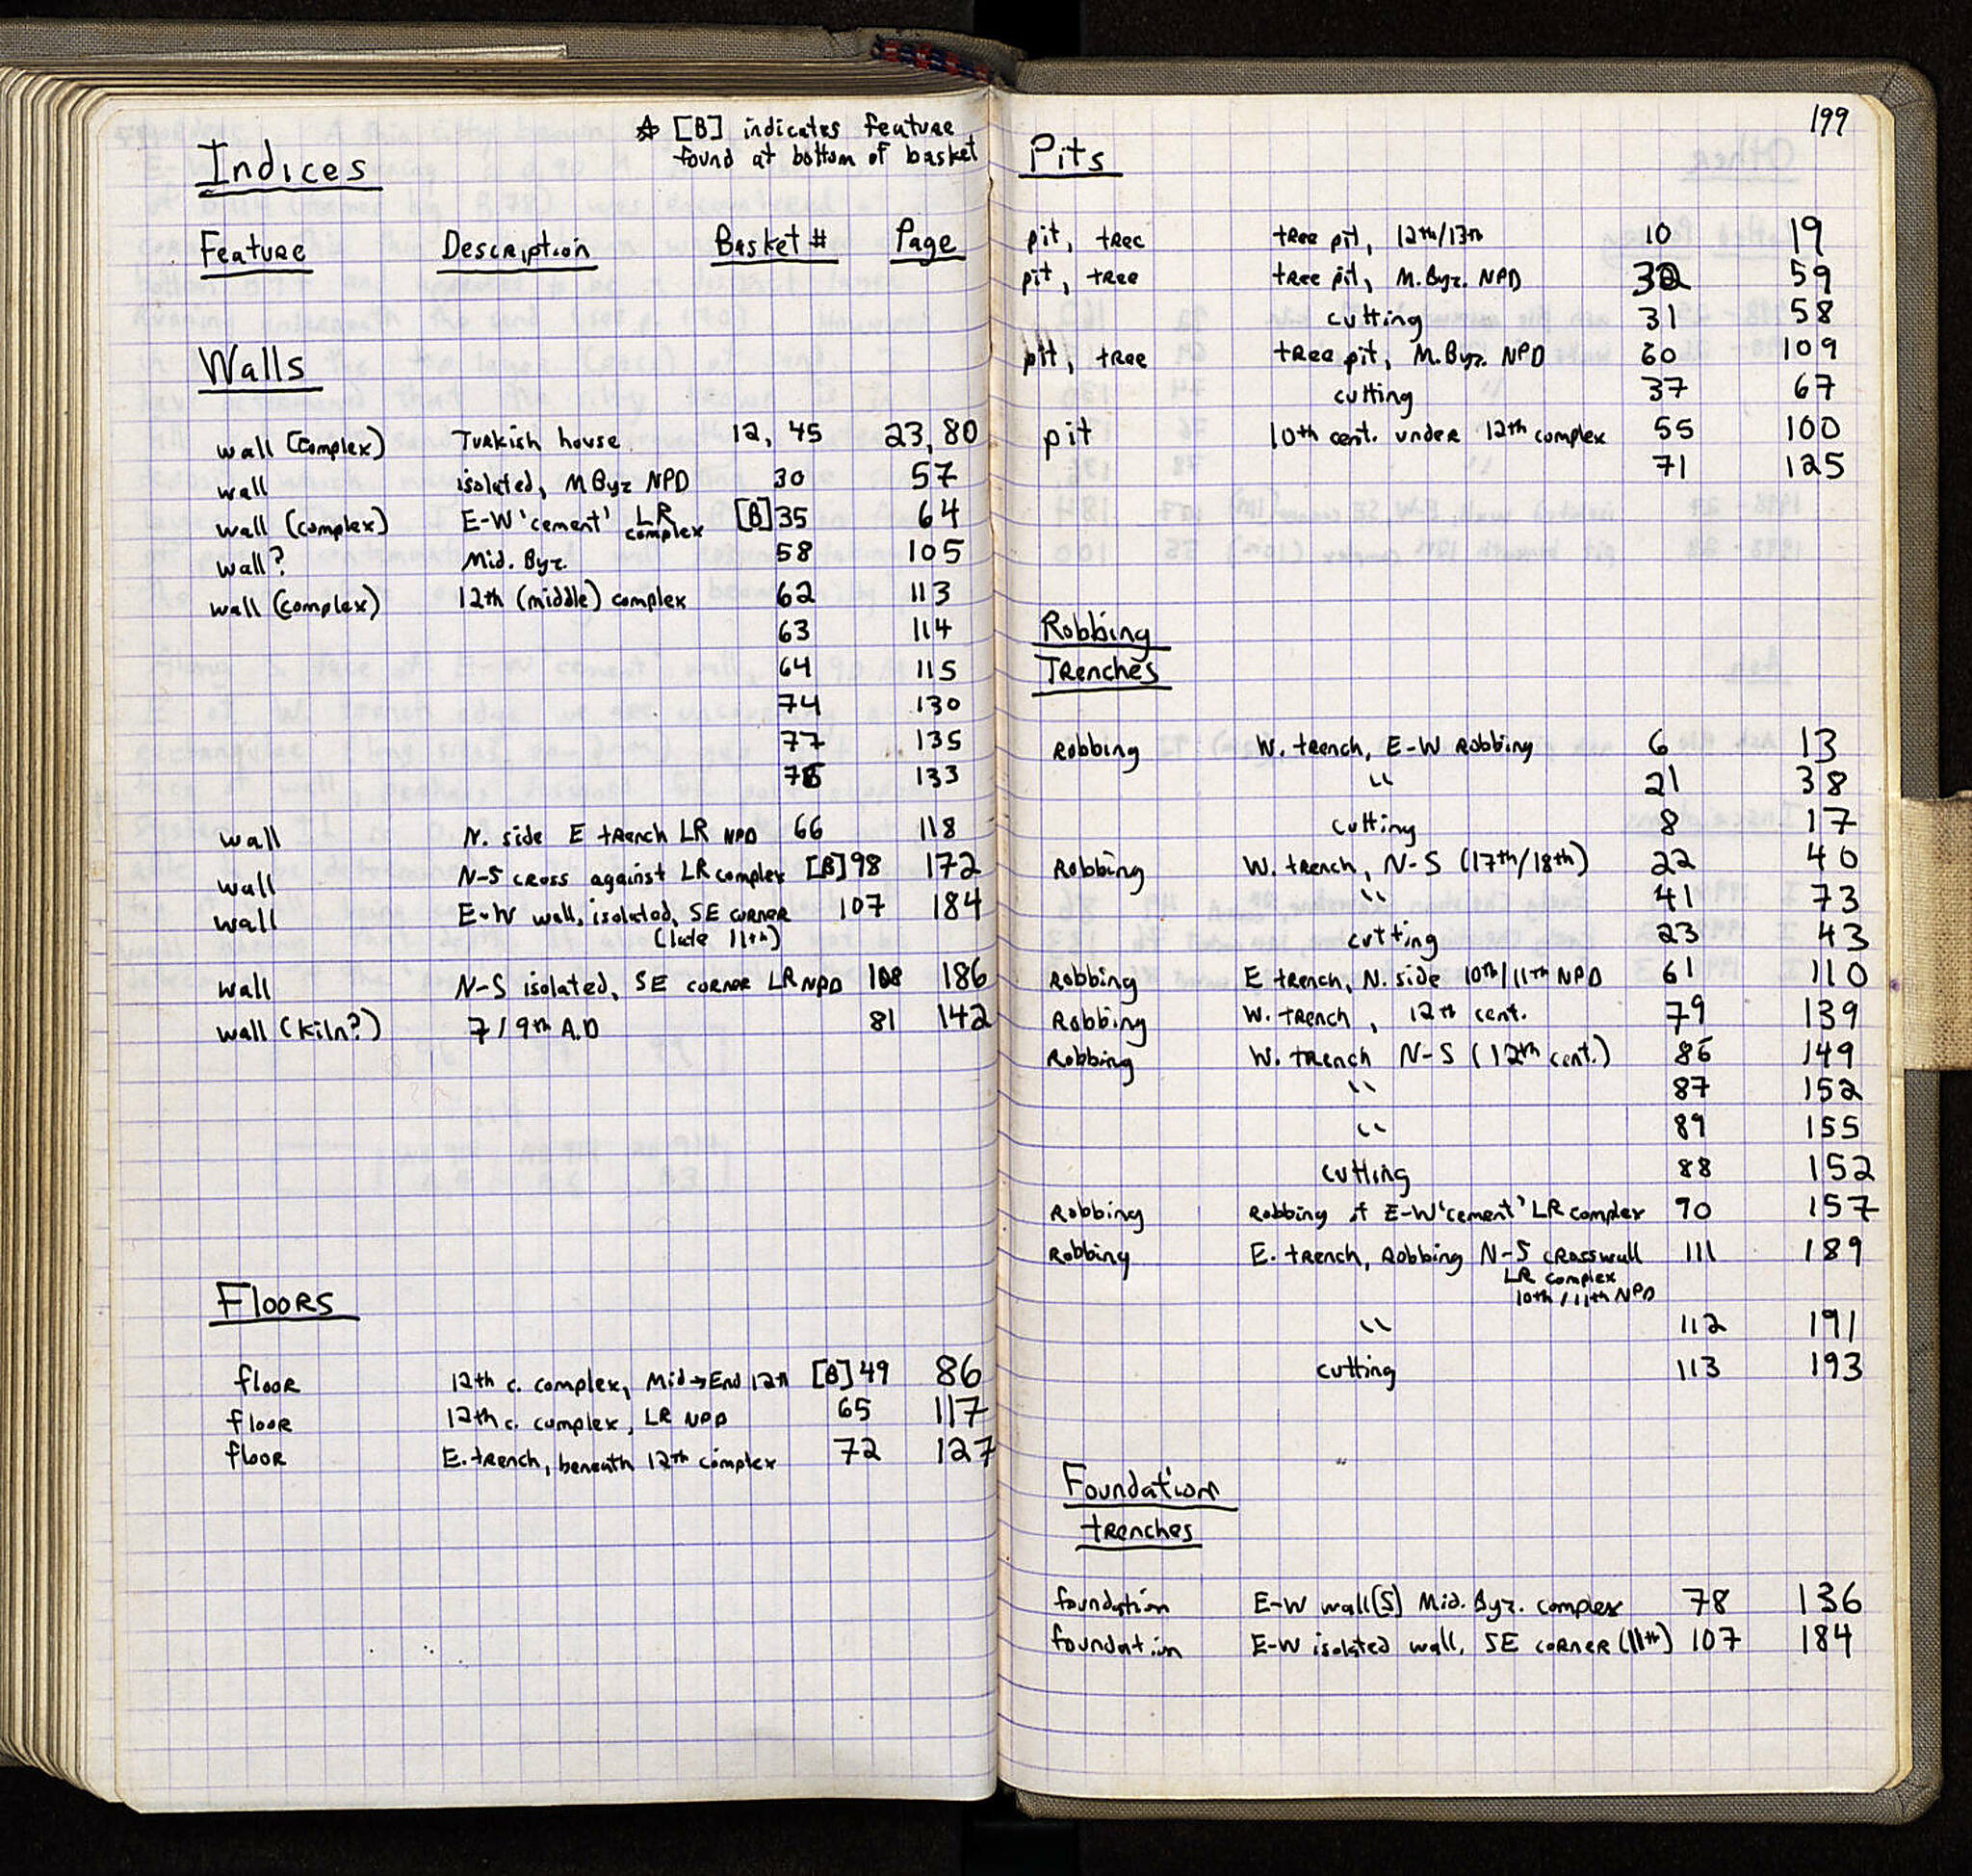 ☆ [B] indicates feature
found at bottom of basket
Indices
Feature Description Basket # Page
Walls
wall (complex) Turkish house 12, 45 23, 80
wall isolated, M Byz NPD 30 57
wall (complex) E-W 'cement' LR complex [B] 35 64
wall? Mid. Byz. 58 105
wall (complex) 12th (middle) complex 62 113
63 114
64 115
74 130
77 135
76 133
wall N. side E trench LR NPD 66 118
wall N-S cross against LR complex [B] 98 172
wall E-W wall, isolated, SE corner 107 184
(late 11th)
wall N-S isolated, SE corner LR NPD 108 186
wall (kiln?) 7/9th A.D 81 142
Floors
floor 12th c. complex, Mid→End 12th [B] 49 86
floor 12th c. complex, LR NPD 65 117
floor E. trench, beneath 12th complex 72 127
199
Pits
pit, tree tree pit, 12th/13th 10 19
pit, tree tree pit, M. Byz. NPD 32 59
cutting 31 58
pit, tree tree pit, M. Byz. NPD 60 109
cutting 37 67
pit 10th cent. under 12th complex 55 100
71 125
Robbing
Trenches
Robbing W. trench, E-W Robbing 6 13
" 21 38
cutting 8 17
Robbing W. trench, N-S (17th/18th) 22 40
" 41 73
cutting 23 43
Robbing E trench, N. side 10th/11th NPD 61 110
Robbing W. trench, 12th cent. 79 139
Robbing W. trench N-S (12th cent.) 86 149
" 87 152
" 89 155
cutting 88 152
Robbing Robbing of E-W 'cement' LR complex 90 157
Robbing E. trench, Robbing N-S crosswall 111 189
LR complex
10th/11th NPD
" 112 191
cutting 113 193
Foundation
trenches
foundation E-W wall(s) Mid. Byz. complex 78 136
foundation E-W isolated wall, SE corner (11th) 107 184